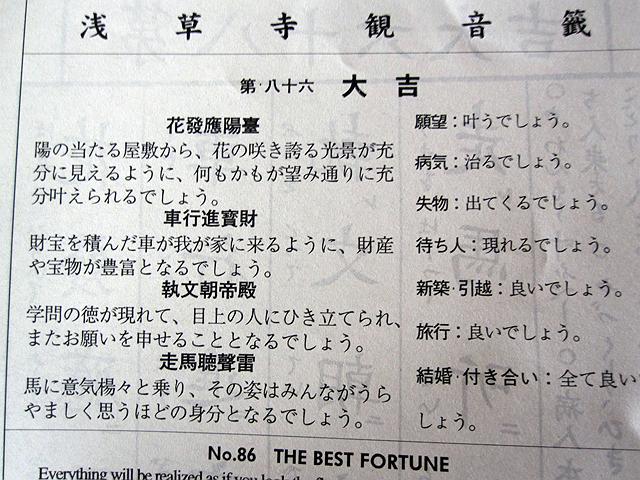 浅草寺観音籤
第・八十六 大吉
花發應陽臺
陽の当たる屋敷から、花の咲き誇る光景が充
分に見えるように、何もかもが望み通りに充
分叶えられるでしょう。
車行進寳財
財宝を積んだ車が我が家に来るように、財産
や宝物が豊富となるでしょう。
執文朝帝殿
学問の徳が現れて、目上の人にひき立てられ、
またお願いを申せることとなるでしょう。
走馬聴聲雷
馬に意気楊々と乗り、その姿はみんながうら
やましく思うほどの身分となるでしょう。
願望：叶うでしょう。
病気：治るでしょう。
失物：出てくるでしょう。
待ち人：現れるでしょう。
新築・引越：良いでしょう。
旅行：良いでしょう。
結婚・付き合い：全て良い
しょう。
No.86 THE BEST FORTUNE
Everything will be realized as if you look the